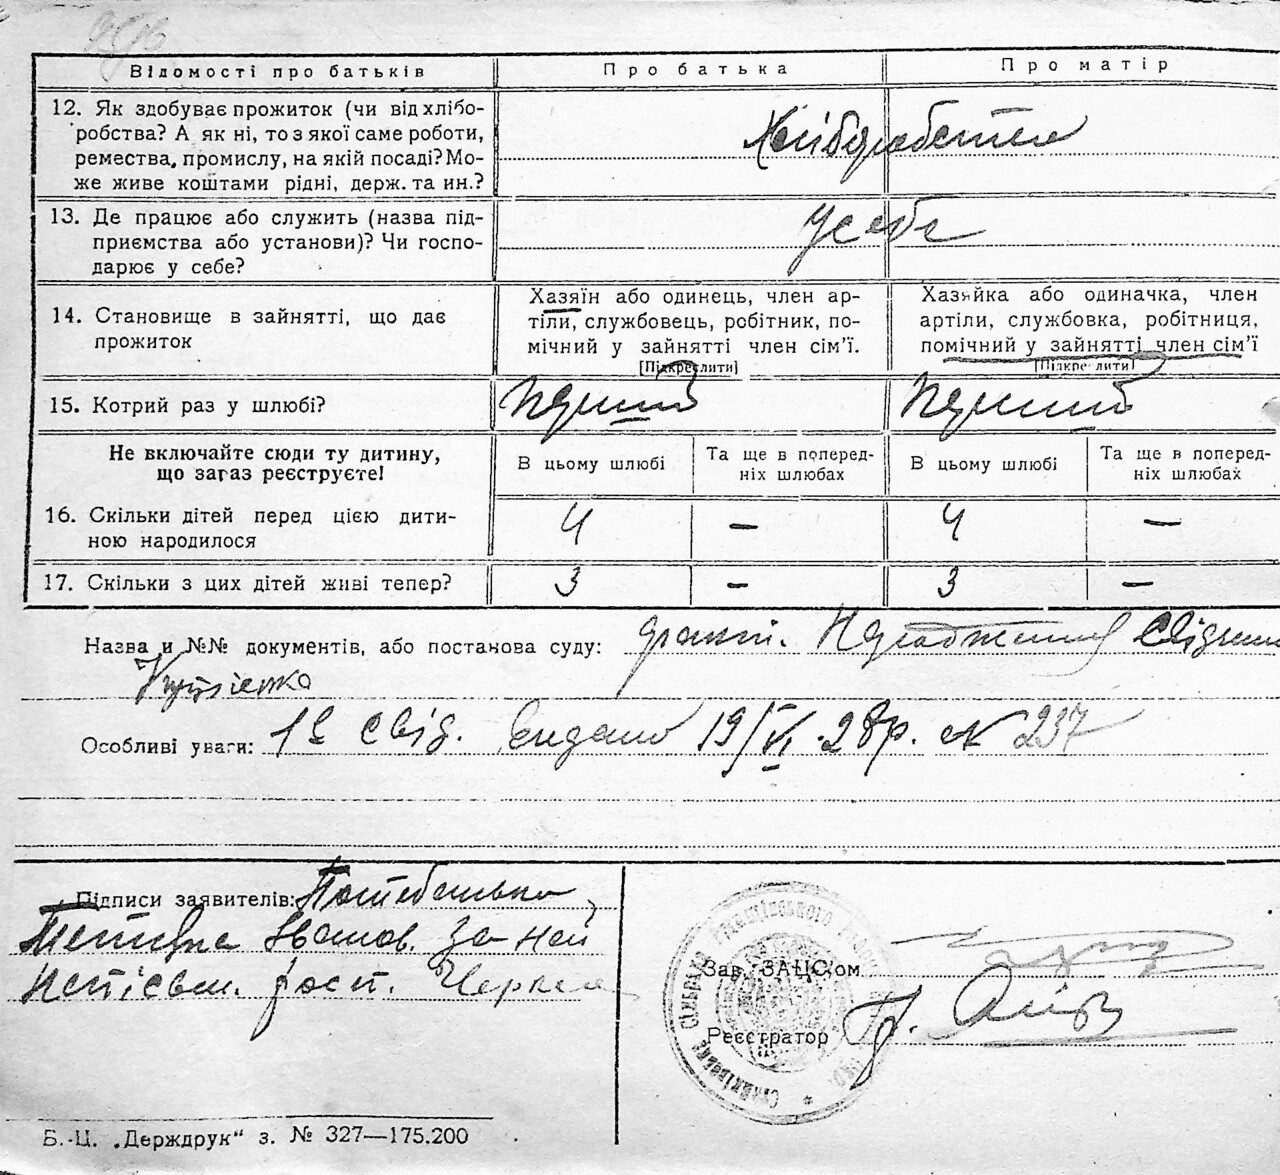 Відомості про батьків
Про батька
Про матір
12. Як здобуває прожиток (чи від хлібо-
робства? А як ні, то з якої саме роботи,
ремества, промислу, на якій посаді? Мо-
же живе коштами рідні, держ. та ин.?
Хліборобство
13. Де працює або служить (назва під-
приємства або установи)? Чи госпо-
дарює у себе?
У себе
14. Становище в зайнятті, що дає
прожиток
Хазяїн або одинець, член ар-
тіли, службовець, робітник, по-
мічний у зайнятті член сім'ї.
[Підкреслити]
Хазяйка або одиначка, член
артіли, службовка, робітниця,
помічний у зайнятті член сім'ї
[Підкреслити]
15. Котрий раз у шлюбі?
Перший
Перший
Не включайте сюди ту дитину,
що загаз реєструєте!
В цьому шлюбі
Та ще в поперед-
ніх шлюбах
В цьому шлюбі
Та ще в поперед-
ніх шлюбах
16. Скільки дітей перед цією дити-
ною народилося
4
—
4
—
17. Скільки з цих дітей живі тепер?
3
—
3
—
Назва и №№ документів, або постанова суду:
Особливі уваги: свід. Видано 19/VI 28р. № 237
Підписи заявителів:
Іванов. За
неписьм. росп.
Зав. ЗАЦС'ом
Реєстратор
Б.-Ц. „Держдрук“ з. № 327—175.200